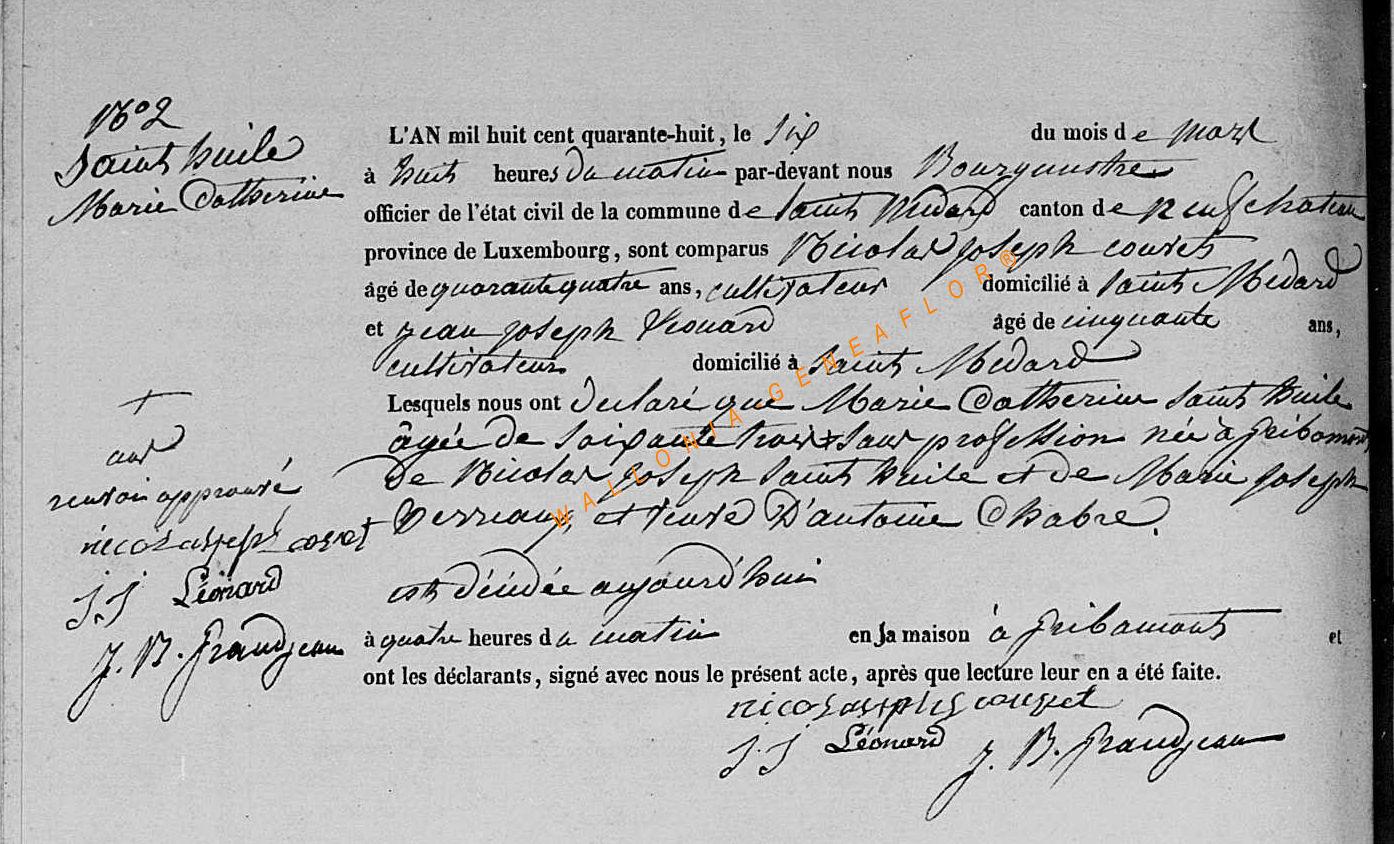 N° 2
Saint huile
Marie Catherine
L'AN mil huit cent quarante-huit, le six du mois de mars
à huit heures du matin par-devant nous Bourgmestre
officier de l'état civil de la commune de Saint Medard canton de Neufchateau
province de Luxembourg, sont comparus Nicolas joseph couset
âgé de quarante quatre ans, cultivateur domicilié à Saint Medard
et jean joseph Léonard âgé de cinquante ans,
cultivateur domicilié à Saint Medard
Lesquels nous ont declaré que Marie Catherine Saint huile
âgée de soixante trois + sans profession née à gribomont
de Nicolas joseph Saint huile et de Marie joseph
et veuve D'antoine Chabre.
est décédée aujourd'hui
à quatre heures du matin en la maison à gribamont et
ont les déclarants, signé avec nous le présent acte, après que lecture leur en a été faite.
J. J Léonard J. B. grandjean
+
ans
renvoi approuvé
J. J Léonard
J. B. grandjean
WALLONIA GENEAFLOR®